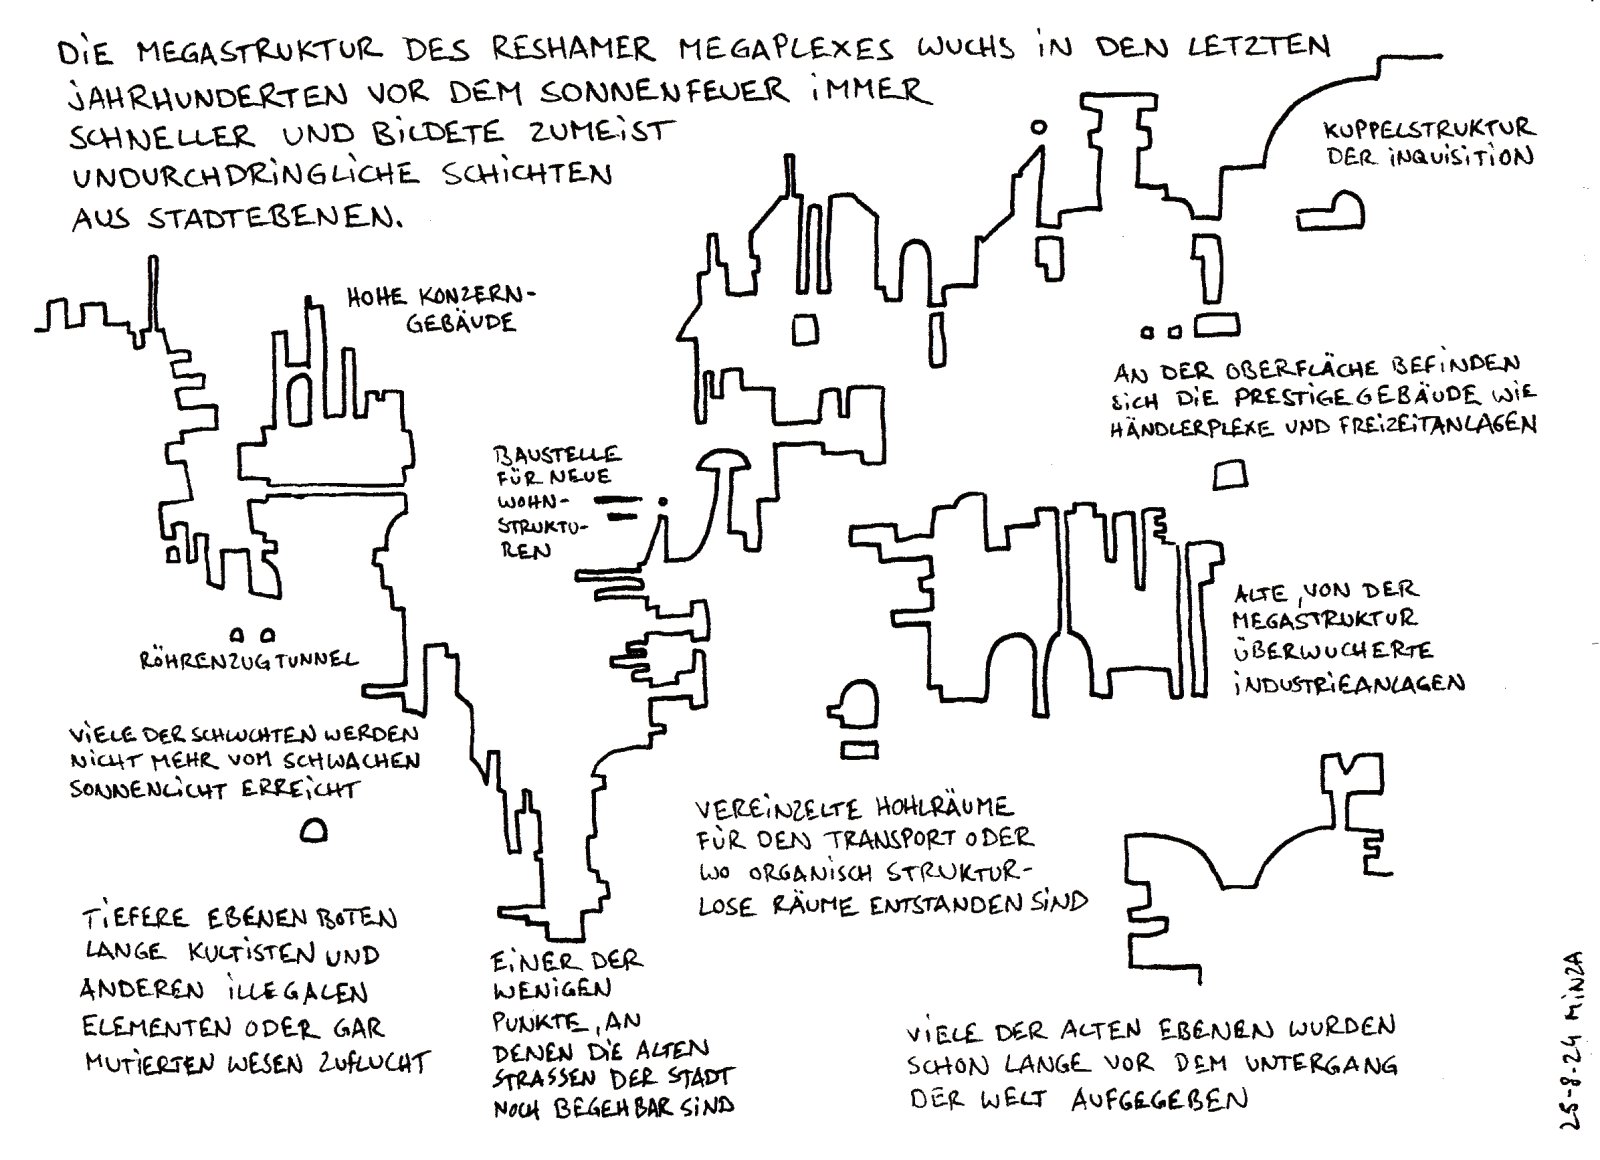 DIE MEGASTRUKTUR DES RESHAMER MEGAPLEXES WUCHS IN DEN LETZTEN
JAHRHUNDERTEN VOR DEM SONNENFEUER IMMER
SCHNELLER UND BILDETE ZUMEIST
UNDURCHDRINGLICHE SCHICHTEN
AUS STADTEBENEN.
KUPPELSTRUKTUR
DER INQUISITION
HOHE KONZERN-
GEBÄUDE
AN DER OBERFLÄCHE BEFINDEN
SICH DIE PRESTIGEGEBÄUDE WIE
HÄNDLERPLEXE UND FREIZEITANLAGEN
BAUSTELLE
FÜR NEUE
WOHN-
STRUKTU-
REN
ALTE, VON DER
MEGASTRUKTUR
ÜBERWUCHERTE
INDUSTRIEANLAGEN
RÖHRENZUGTUNNEL
VIELE DER SCHLUCHTEN WERDEN
NICHT MEHR VOM SCHWACHEN
SONNENLICHT ERREICHT
VEREINZELTE HOHLRÄUME
FÜR DEN TRANSPORT ODER
WO ORGANISCH STRUKTUR-
LOSE RÄUME ENTSTANDEN SIND
TIEFERE EBENEN BOTEN
LANGE KULTISTEN UND
ANDEREN ILLEGALEN
ELEMENTEN ODER GAR
MUTIERTEN WESEN ZUFLUCHT
EINER DER
WENIGEN
PUNKTE, AN
DENEN DIE ALTEN
STRASSEN DER STADT
NOCH BEGEHBAR SIND
VIELE DER ALTEN EBENEN WURDEN
SCHON LANGE VOR DEM UNTERGANG
DER WELT AUFGEGEBEN
25-8-24 MINZA